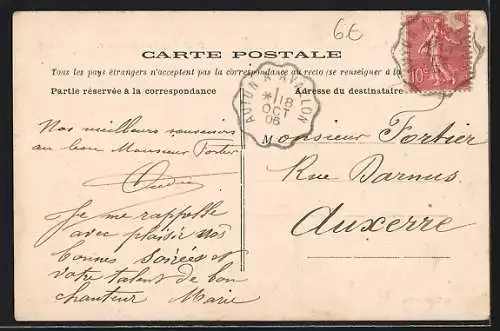 6€
CARTE POSTALE
Tous les pays étrangers n'acceptent pas la correspondance au recto (se renseigner à la
Partie réservée à la correspondance
Adresse du destinataire
AUTUN A AVALLON
*1 18
OCT
06
10c
Nos meilleurs souvenirs
au bon Monsieur Fortier
Je me rappelle
avec plaisir vos
bonnes soirées et
votre talent de bon
chanteur Marie
Monsieur Fortier
Rue Darnus
Auxerre